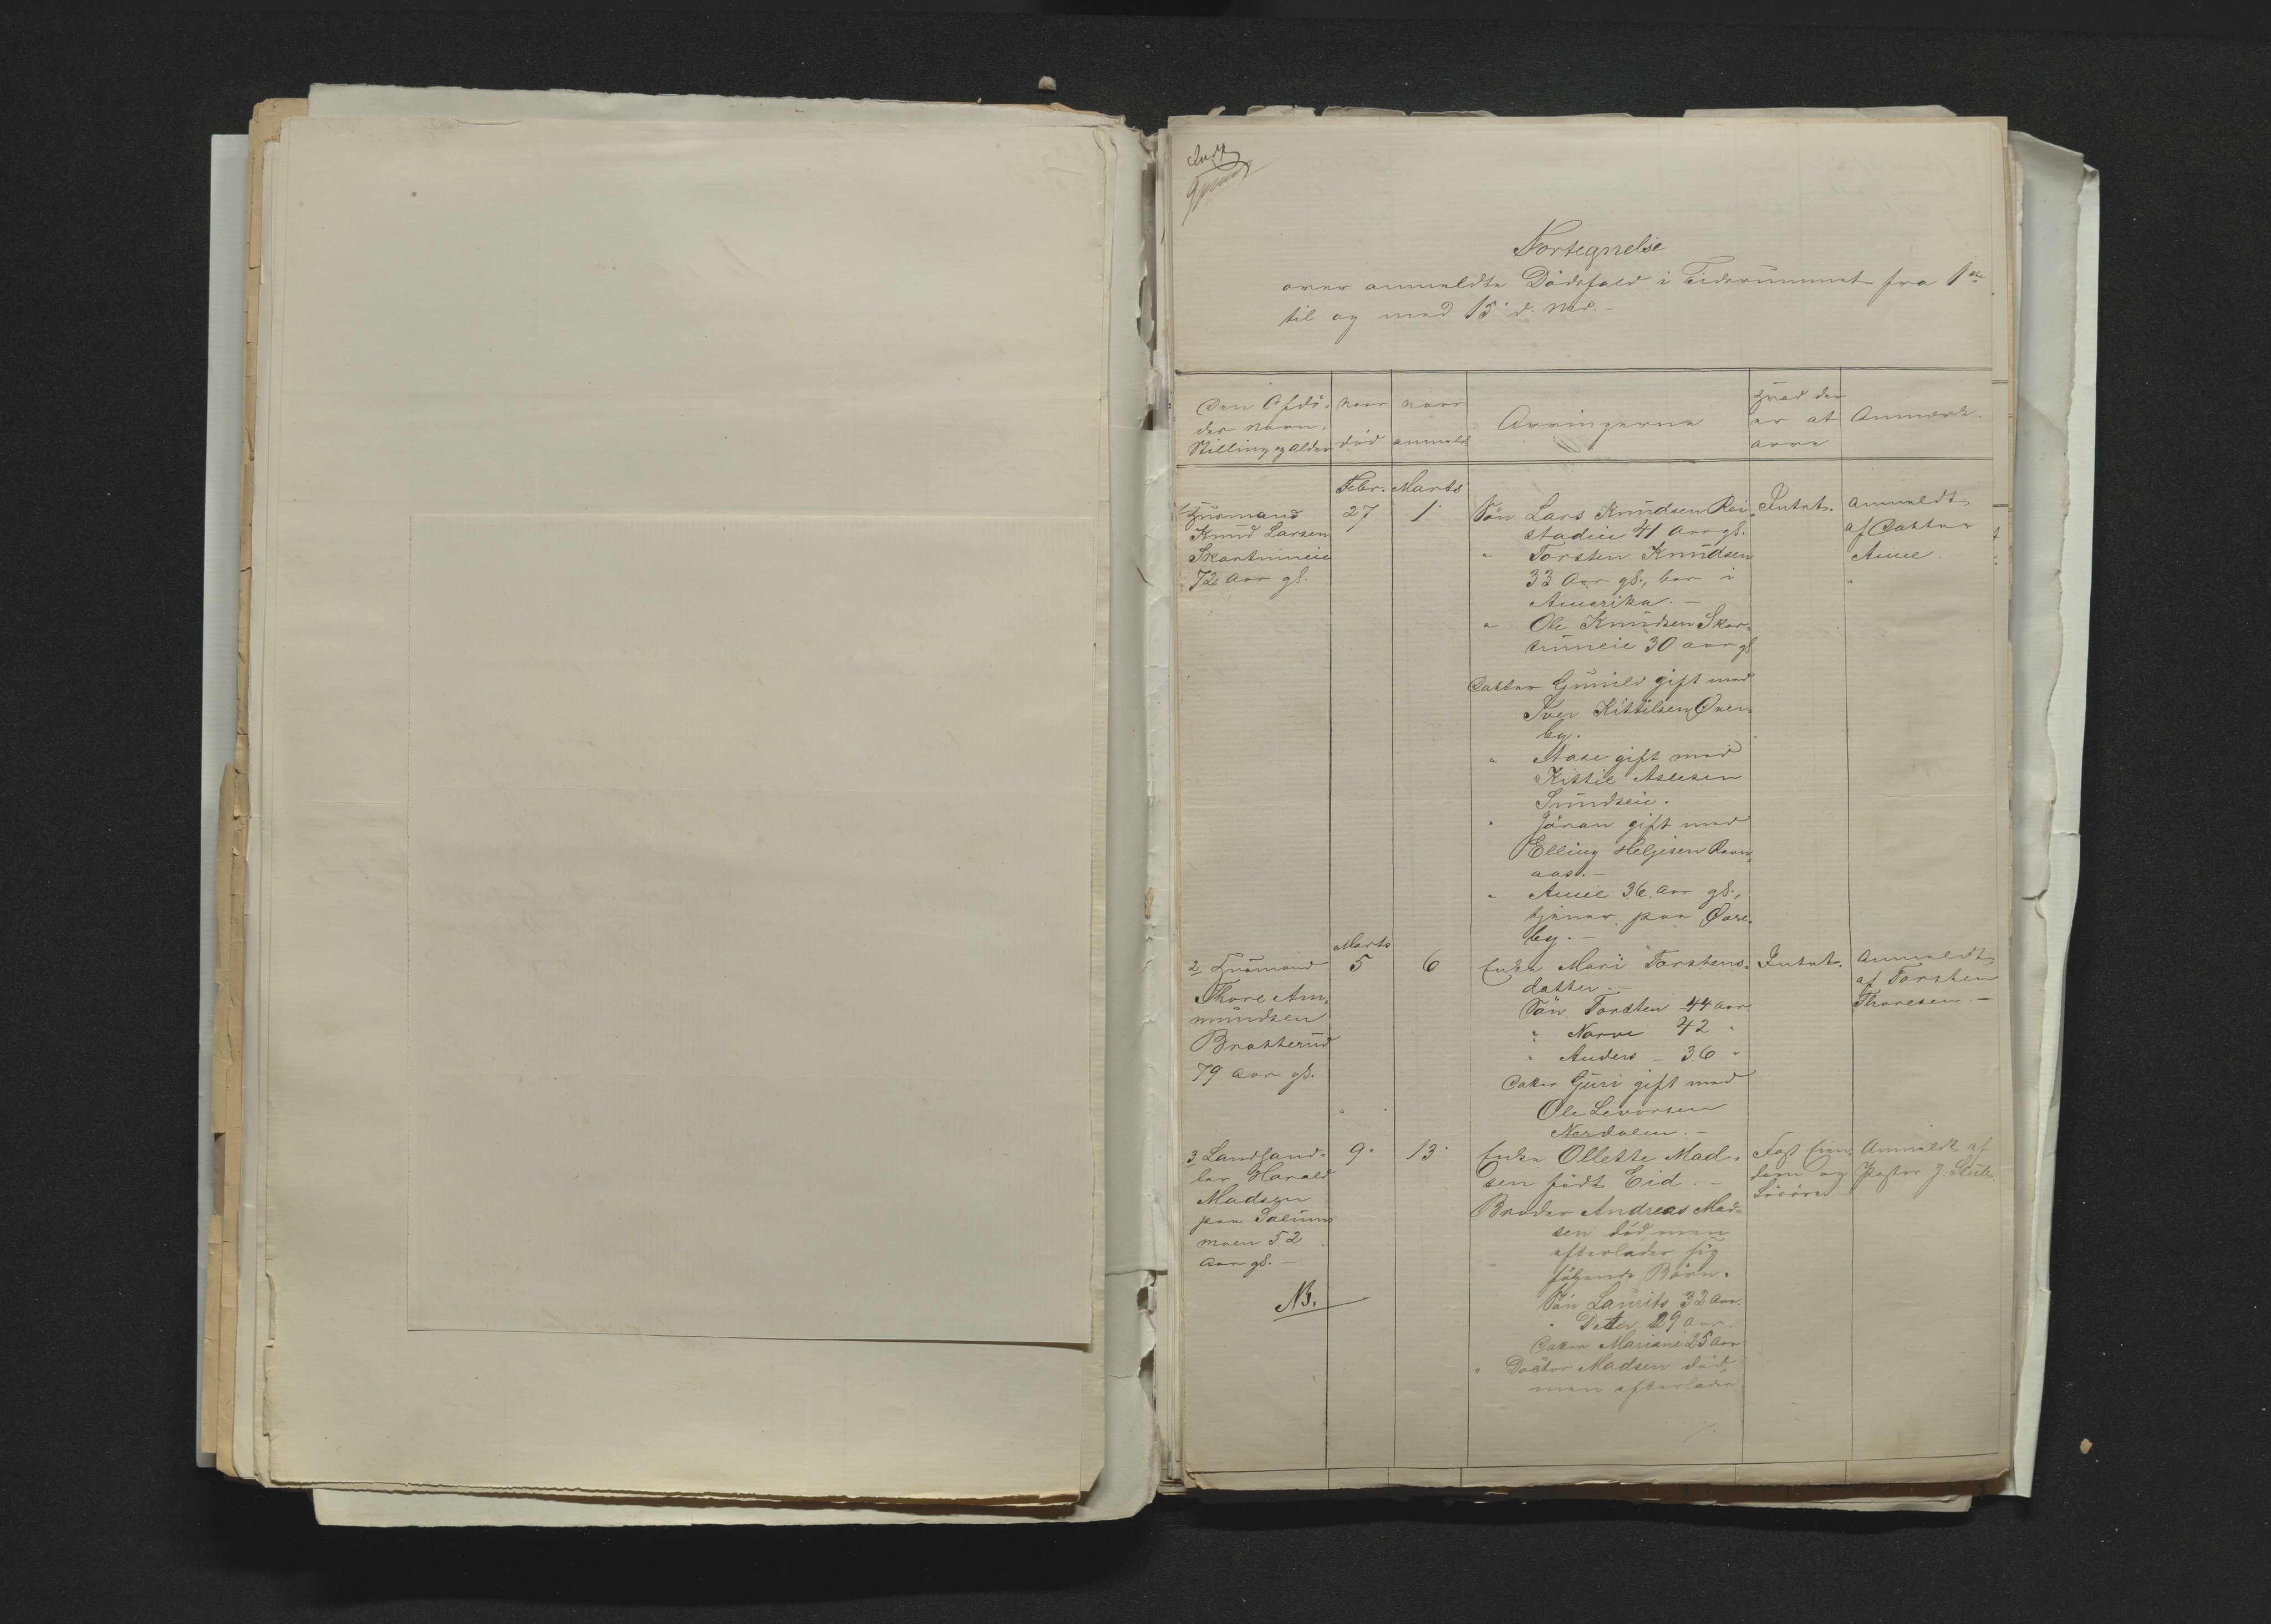 Indf
Fortegnelse
over anmeldte Dödsfald i Tidsrummet fra 1ste
til og med 15 d. Md. -
Den Afdö-
des Navn,
Stilling og Alder
naar
död
naar
anmeldt
Arvingerne
Hvad der
er at
arve
Anmærk.
Febr.
Marts
1 Husmand
Knud Larsen
Skartumeie
72 Aar gl.
27
1
Sön Lars Knudsen Rei-
stadeie 41 Aar gl.
" Torsten Knudsen
33 Aar gl., bor i
Amerika. -
" Ole Knudsen Skar-
tumeie 30 aar gl.
Datter Gunild gift med
Iver Kittilsen Øver-
by.
" Aase gift med
Kittil Aslesen
Sundseie.
" Jöran gift med
Elling Helgesen Ravn-
aas. -
" Anne 36 Aar gl.,
tjener paa Øvre-
by. -
Intet.
Anmeldt
af Datter
Anne.
Marts
2 Husmand
Thore Am-
mundsen
Bratterud
79 Aar gl.
5
6
Enke Mari Torstens-
datter. -
Sön Torsten 44 Aar
" Narve 42 "
" Anders - 36 "
Datter Guri gift med
Ole Levorsen
Nerdalen. -
Intet.
Anmeldt
af Torsten
Thoresen. -
3 Landhand-
ler Harald
Madsen
paa Salums
moen 52
Aar gl. -
NB.
9
13
Enke Ollette Mad-
sen födt Eid. -
Broder Andreas Mad-
sen död, men
efterlader sig
fölgende Börn.
Sön Laurits 32 Aar.
" Peter 29 Aar.
Datter Mariane 25 Aar
" Doctor Madsen död,
men efterlader
Fast Eien-
dom og
Lösöre
Anmeldt af
Pastor J.
./.